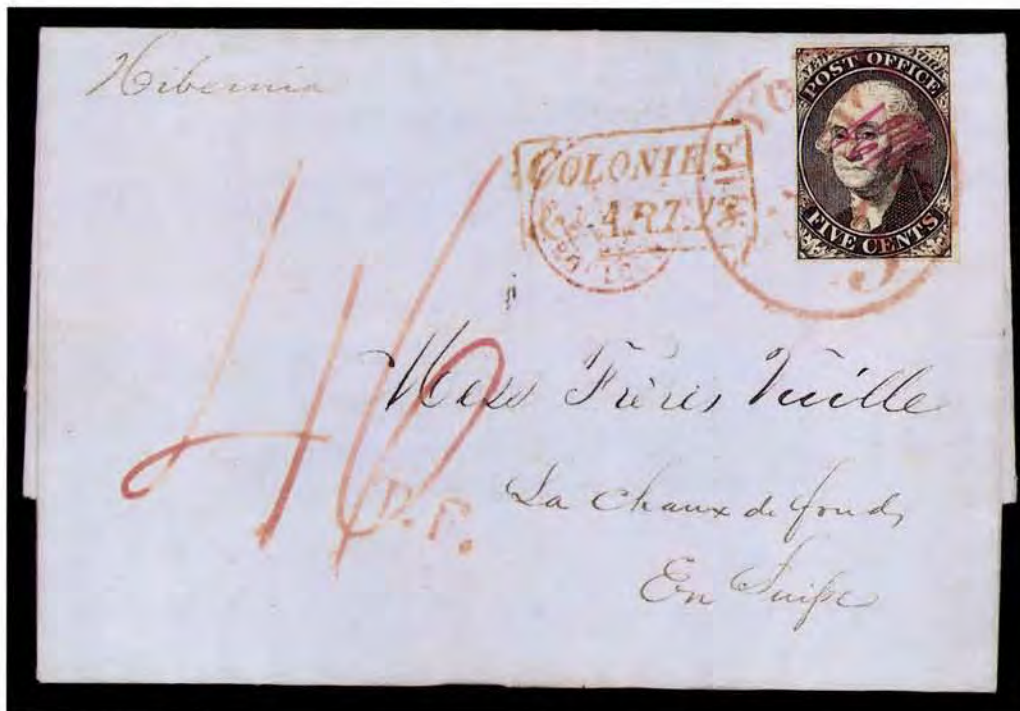 Hibernia
NEW YORK
POST OFFICE
FIVE CENTS
YORK
5
COLONIES
&c. ART. 13.
46
P. P.
Mess Frères Vuille
La Chaux de fonds
En Suisse